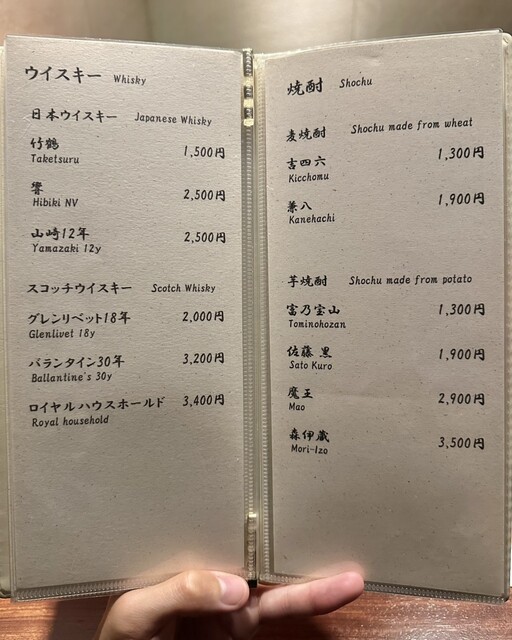 ウイスキー Whisky
日本ウイスキー Japanese Whisky
竹鶴 1,500円
Taketsuru
響 2,500円
Hibiki NV
山崎12年 2,500円
Yamazaki 12y
スコッチウイスキー Scotch Whisky
グレンリベット18年 2,000円
Glenlivet 18y
バランタイン30年 3,200円
Ballantine's 30y
ロイヤルハウスホールド 3,400円
Royal household
焼酎 Shochu
麦焼酎 Shochu made from wheat
吉四六 1,300円
Kicchomu
兼八 1,900円
Kanehachi
芋焼酎 Shochu made from potato
富乃宝山 1,300円
Tominohozan
佐藤 黒 1,900円
Sato Kuro
魔王 2,900円
Mao
森伊蔵 3,500円
Mori-Izo